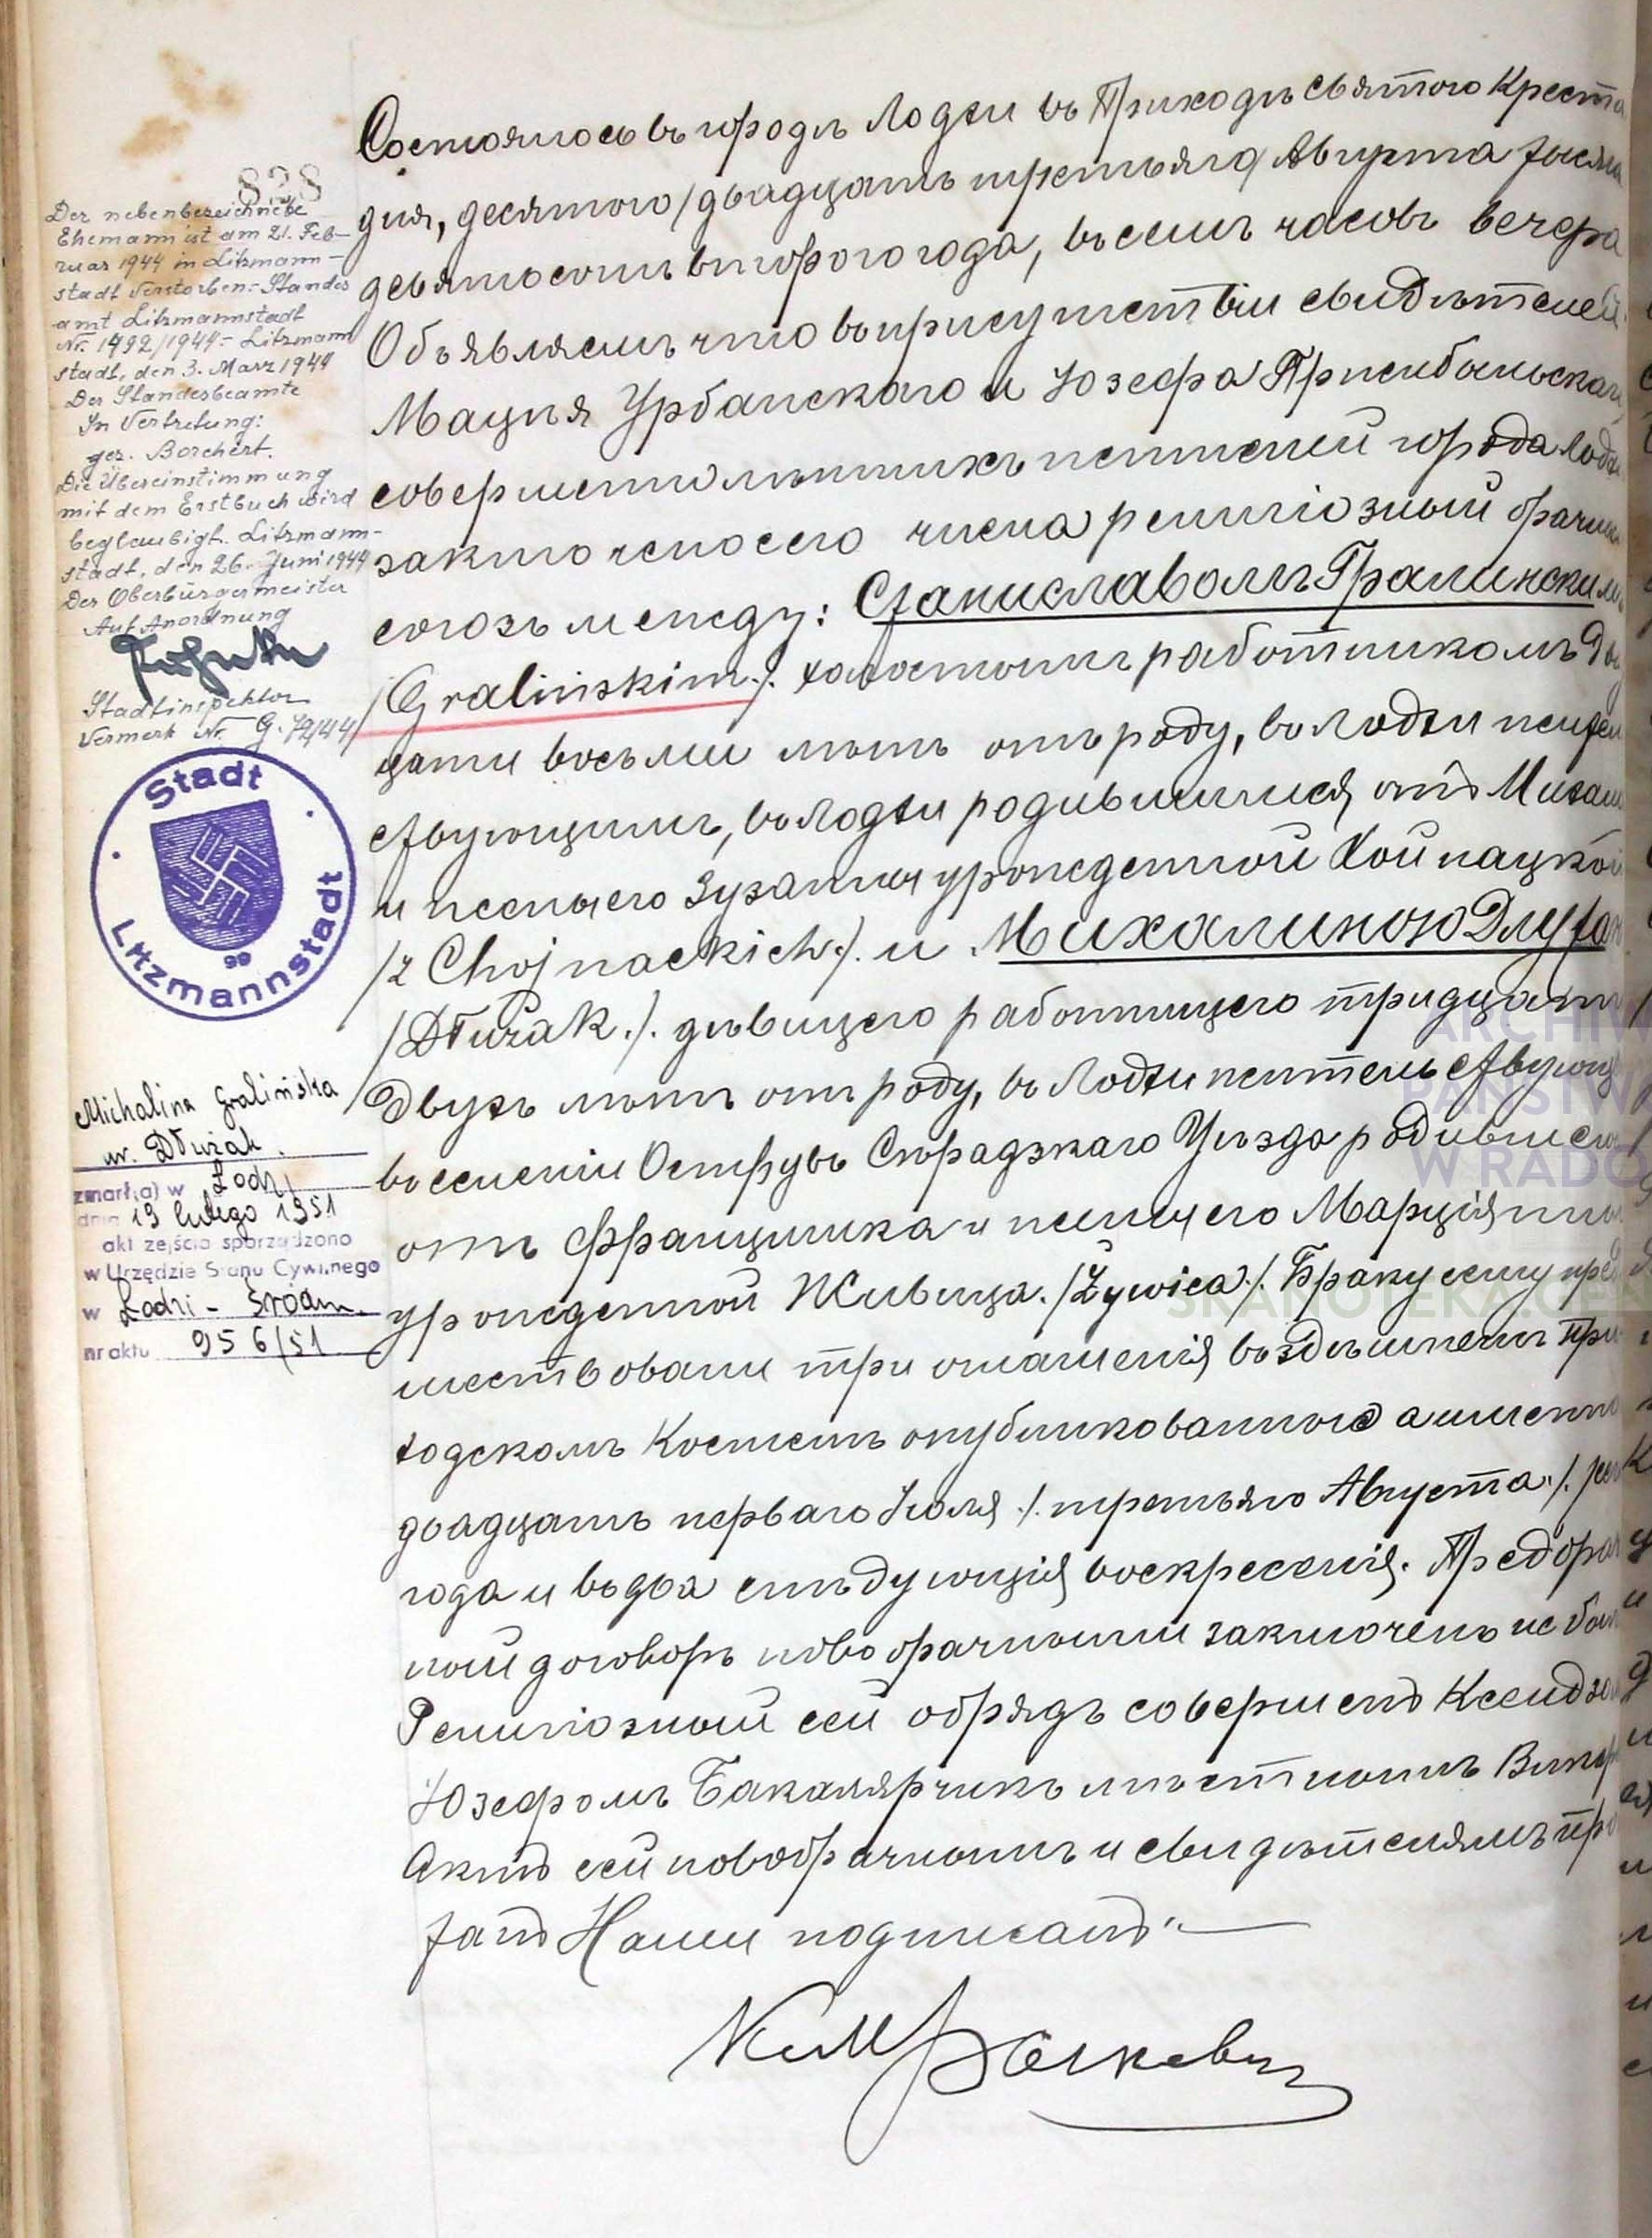 828
Der nebenbezeichnete
Ehemann ist am 21. Feb-
ruar 1944 in Litzmann-
stadt verstorben.- Standes
amt Litzmannstadt
Nr. 1492/1944.- Litzmann
stadt, den 3. März 1944
Der Standesbeamte
In Vertretung:
gez. Borchert.
Die Übereinstimmung
mit dem Erstbuch wird
beglaubigt. Litzmann-
stadt, den 26. Juni 1944
Der Oberbürgermeister
Auf Anordnung
Stadtinspektor
Vermerk Nr. G. 79/44
Stadt
Litzmannstadt
99
Michalina Gralińska
ur. Dłużak
zmarł(a) w Łodzi
dnia 19 lutego 1951
akt zejścia sporządzono
w Urzędzie Stanu Cywilnego
w Łodzi - Śródm.
nr aktu 956/51
Состоялось въ городѣ Лодзи въ Приходѣ Святого Креста
дня, десятого /двадцать третьяго/ Августа тысяча
девятьсотъ второго года, въ семь часовъ вечера
Объявляемъ что въ присутствіи свидѣтелей
Мацѣя Урбанскаго и Юзефа Пршибыльскаго
совершеннолѣтнихъ жителей города Лодзи
заключено сего числа религіозный брачный
союзъ между: Станиславомъ Гралинскимъ
/Gralińskim./. холостымъ работникомъ два
цати восьми лѣтъ отъ роду, въ Лодзи жител
ствующимъ, въ Лодзи родившимся отъ Михаила
и жены его Зузанны урожденной Хойнацкой
/z Chojnackich./. и Михалиною Длужак
/Dłużak./. дѣвицею работницею тридцати
двухъ лѣтъ отъ роду, въ Лодзи жительствующ
въ селеніи Острувъ Сѣрадзкаго Уѣзда родившеюся
отъ Францишка и жены его Марціянны
урожденной Живица./Żywica./. Браку сему пред
шествовали три оглашенія въ здѣшнемъ При
ходскомъ Костелѣ опубликованного а именно
двадцать первого Іюля ./. третьяго Августа./.
года и въ два слѣдующія воскресенія. Предбрач
ный договоръ новобрачными заключенъ не былъ
Религіозный сей обрядъ совершенъ Ксендзомъ
Юзефомъ Бакалярчикъ мѣстнымъ Викар
Актъ сей новобрачнымъ и свидѣтелямъ про
танъ Нами подписанъ.—
ARCHIW
PAŃSTW
W RADO
SKANOTEKA.GEN